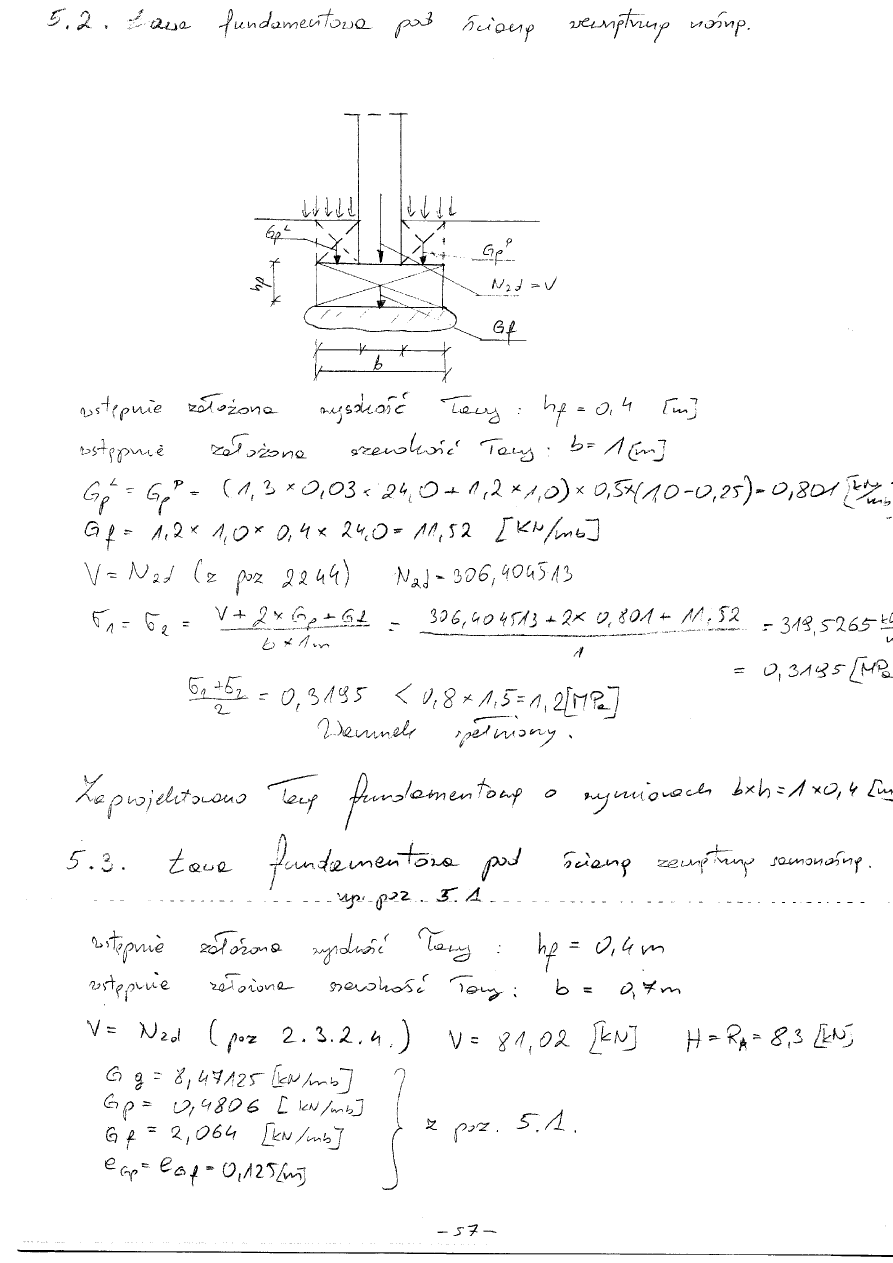 5.2. Ława fundamentowa pod ścianę wewnętrzną nośną.
Gp^L
Gp^P
hf
N2d = V
Gf
b
wstępnie założona wysokość ławy : hf = 0,4 [m]
wstępnie założona szerokość ławy : b = 1 [m]
Gp^L = Gp^P = (1,3 × 0,03 × 24,0 + 1,2 × 1,0) × 0,5 × (1,0 - 0,25) = 0,801 [kN/mb]
Gf = 1,2 × 1,0 × 0,4 × 24,0 = 11,52 [KN/mb]
V = N2d (z poz 2244) N2d = 306,404513
σ1 = σ2 = (V + 2 × Gp + Gf) / (b × 1m) = (306,404513 + 2 × 0,801 + 11,52) / 1 = 319,5265
= 0,3195 [MPa
(σ1 + σ2) / 2 = 0,3195 < 0,8 × 1,5 = 1,2 [MPa]
Warunek spełniony.
Zaprojektowano ławę fundamentową o wymiarach b×h = 1 × 0,4 [m
5.3. Ława fundamentowa pod ścianę zewnętrzną samonośną.
wg. poz. 5.1
wstępnie założona wysokość ławy : hf = 0,4 m
wstępnie założona szerokość ławy : b = 0,7 m
V = N2d (poz 2.3.2.4.) V = 81,02 [kN] H = RA = 8,3 [kN]
Gg = 8,47125 [kN/mb]
Gp = 0,4806 [kN/mb]
Gf = 2,064 [kN/mb]
z poz. 5.1.
eGp = eGf = 0,125 [m]
- 57 -